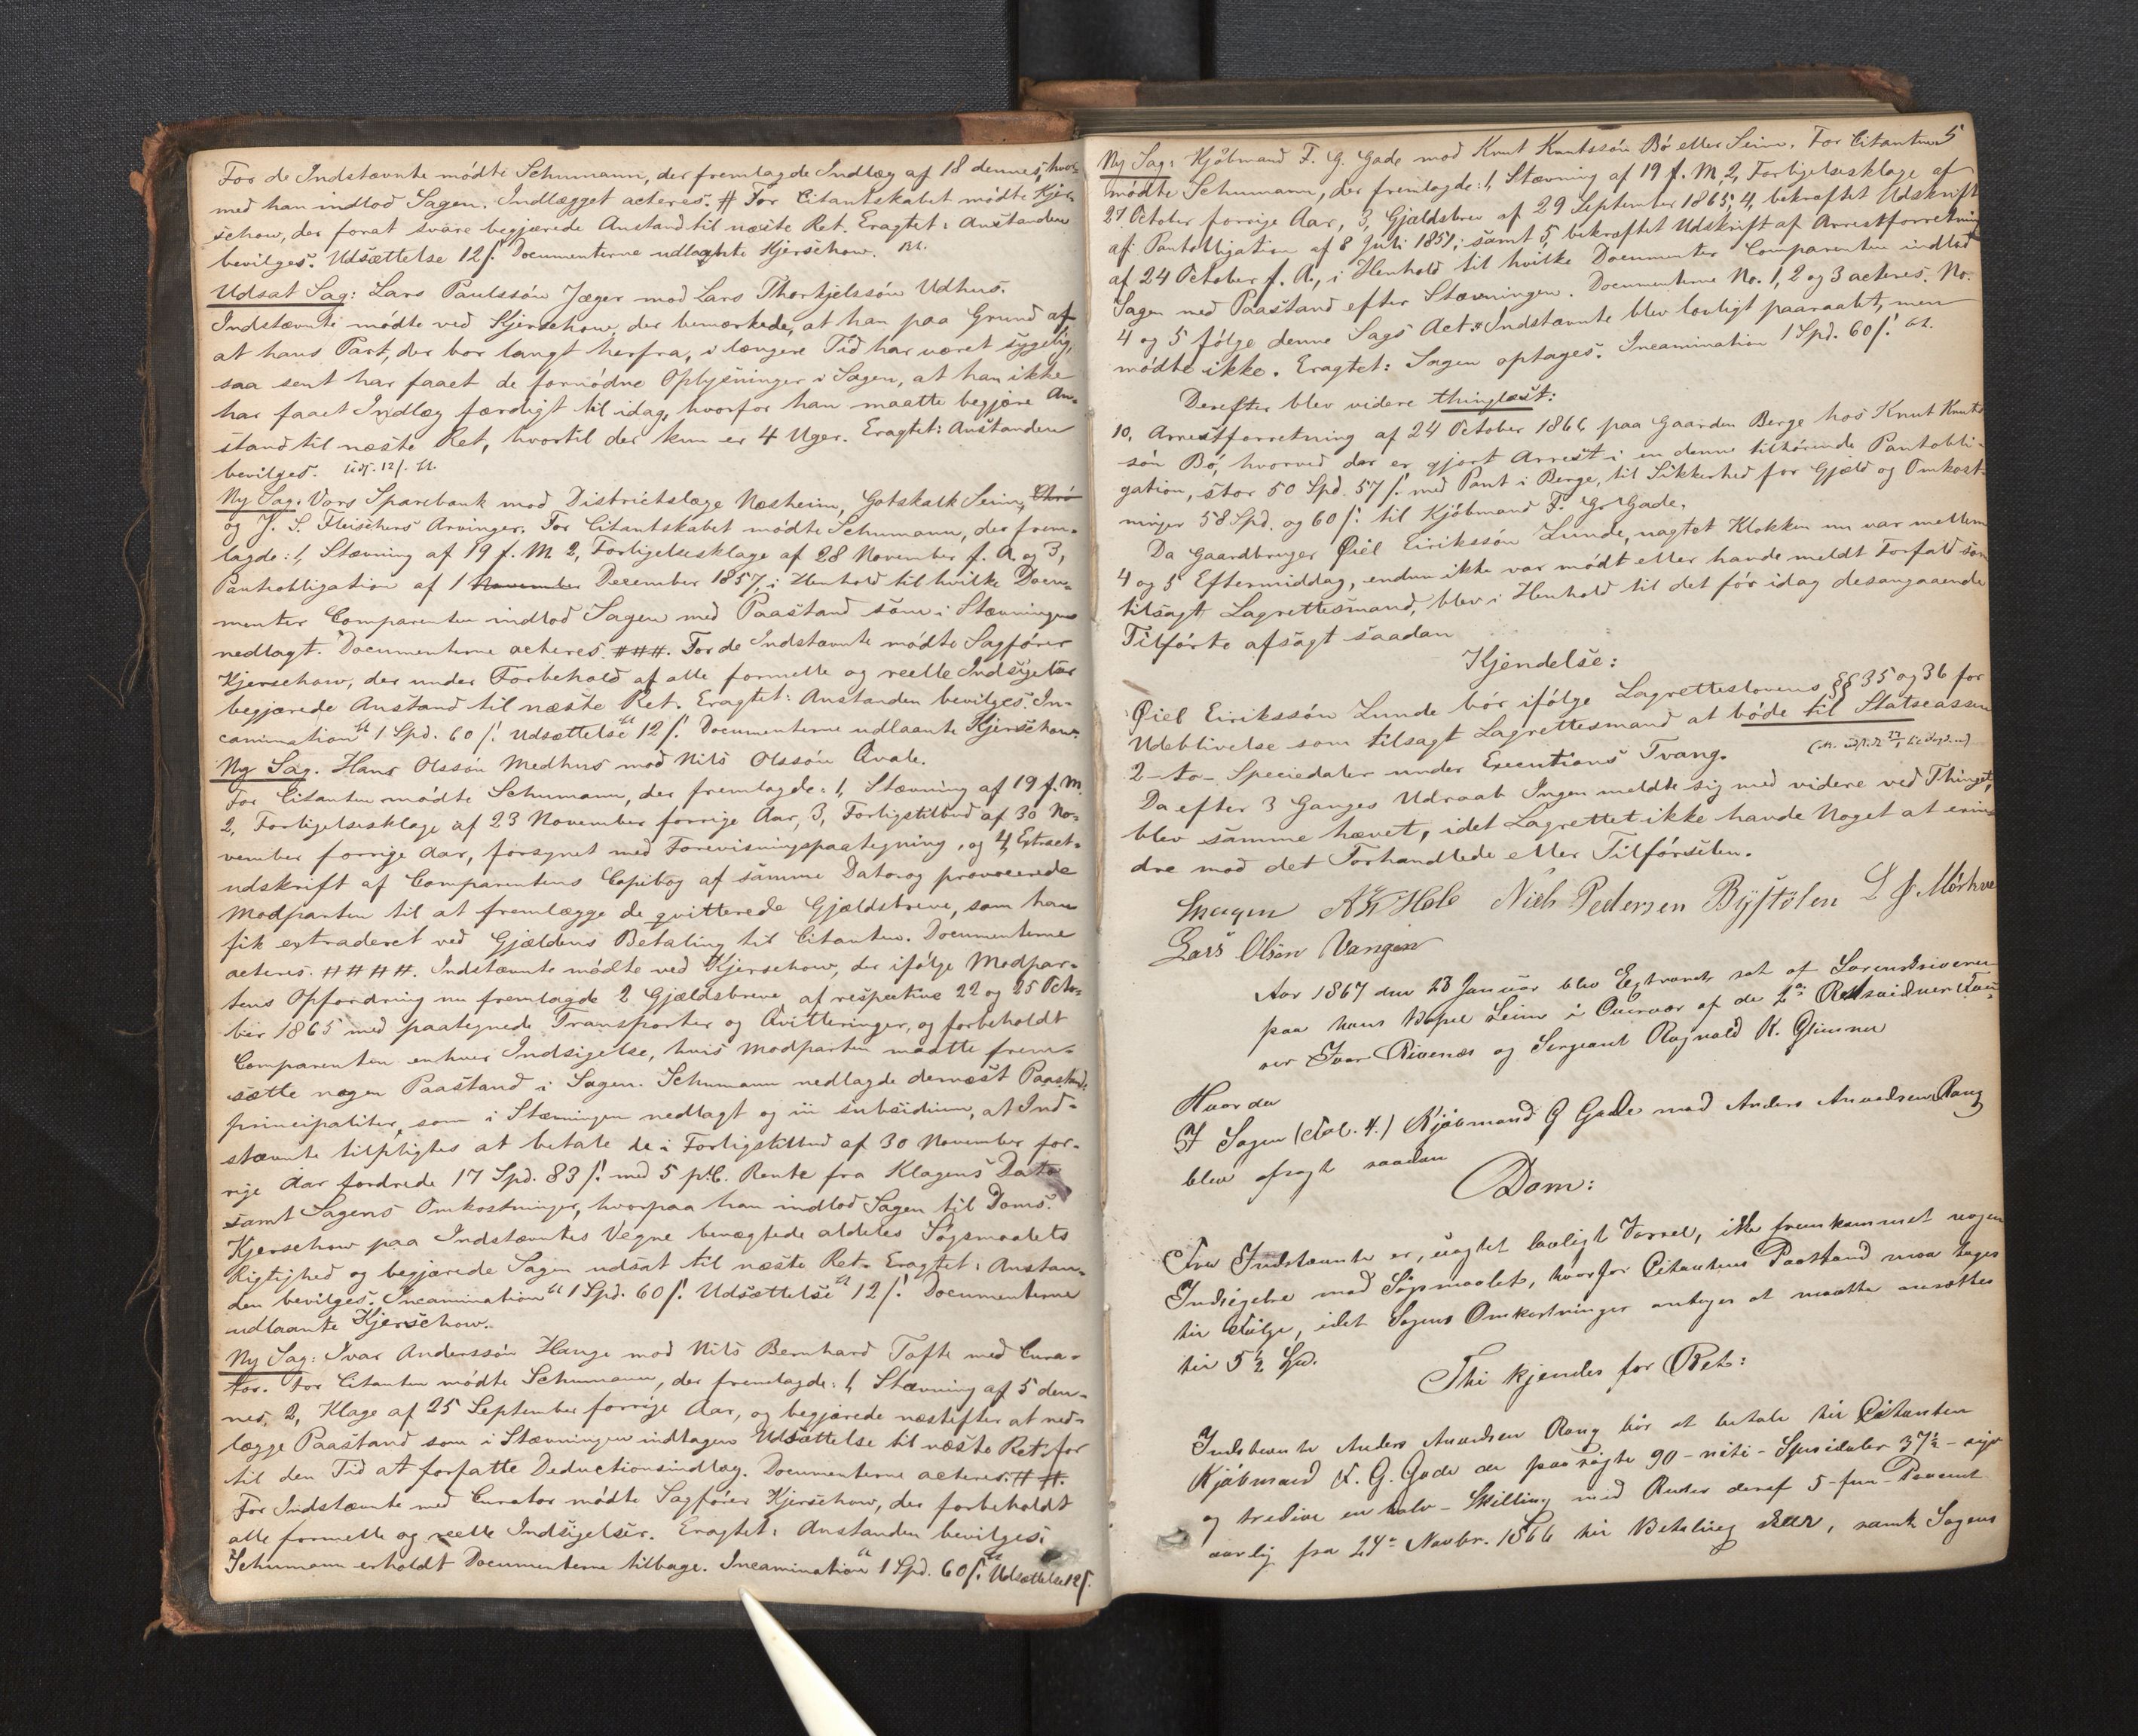 For de Indstævnte mødte Schumann, der fremlagde Indlæg af 18 dennes, hvor-
med han indlod Sagen. Indlægget acteres. # For Citantskabet mødte Kjer-
schow, der forat svare begjærede Anstand til næste Ret. Eragtet: Anstanden
bevilges. Udsættelse 12 ß. Documenterne udlaante Kjerschow.
Udsat Sag: Lars Paulssøn Jæger mod Lars Thorkjelssøn Udhus.
Indstævnte mødte ved Kjerschow, der bemærkede, at han paa Grund af
at hans Part, der bor langt herfra, i længere Tid har været sygelig,
saa sent har faaet de fornødne Oplysninger i Sagen, at han ikke
har faaet Indlæg færdigt til idag, hvorfor han maatte begjære An-
stand til næste Ret, hvortil der kun er 4 Uger. Eragtet: Anstanden
bevilges. Uds. 12 ß.
Ny Sag. Vors Sparebank mod Districtslæge Næsheim, Gotskalk Seim,
og J. S. Fleischers Arvinger. For Citantskabet mødte Schumann, der frem-
lagde: 1, Stævning af 19 f. M. 2, Forligelsesklage af 28 November f. A. og 3,
Panteobligation af 1 November December 1857, i Henhold til hvilke Docu-
menter Comparenten indlod Sagen med Paastand som i Stævningen
nedlagt. Documenterne acteres. ###. For de Indstævnte mødte Sagfører
Kjerschow, der under Forbehold af alle formelle og reelle Indsigelser
begjærede Anstand til næste Ret. Eragtet: Anstanden bevilges. In-
camination 1 Spd. 60 ß. Udsættelse 12 ß. Documenterne udlaante Kjerschow.
Ny Sag. Hans Olssøn Medhus mod Nils Olssøn Qvale.
For Citanten mødte Schumann, der fremlagde: 1, Stævning af 19 f. M.
2, Forligelsesklage af 23 November forrige Aar, 3, Forligstilbud af 30 No-
vember forrige Aar, forsynet med Forevisningspaategning, og 4, Extract-
udskrift af Comparentens Copibog af samme Dato og provocerede
Modparten til at fremlægge de qvitterede Gjældsbreve, som han
fik extraderet ved Gjældens Betaling til Citanten. Documenterne
acteres. ####. Indstævnte mødte ved Kjerschow, der ifølge Modpar-
tens Opfordring nu fremlagde 2 Gjældsbreve af respektive 22 og 25 Octo-
ber 1865 med paategnede Transporter og Qvitteringer, og forbeholdt
Comparenten enhver Indsigelse, hvis Modparten maatte frem-
sætte nogen Paastand i Sagen. Schumann nedlagde dernæst Paastand:
principaliter, som i Stævningen nedlagt og in subsidium, at Ind-
stævnte tilpligtes at betale de i Forligstilbud af 30 November for-
rige Aar fordrede 17 Spd. 83 ß. med 5 pC. Rente fra Klagens Dato
samt Sagens Omkostninger, hvorpaa han indlod Sagen til Doms.
Kjerschow paa Indstævntes Vegne benægtede aldeles Søgsmaalets
Rigtighed og begjærede Sagen udsat til næste Ret. Eragtet: Anstan-
den bevilges. Incamination 1 Spd. 60 ß. Udsættelse 12 ß. Documenterne
udlaante Kjerschow.
Ny Sag: Ivar Anderssøn Hauge mod Nils Bernhard Tofte med Cura-
tor. For Citanten mødte Schumann, der fremlagde: 1, Stævning af 5 den-
nes, 2, Klage af 25 September forrige Aar, og begjærede næstefter at ned-
lægge Paastand som i Stævningen indtagen Udsættelse til næste Ret for
til den Tid at forfatte Deductionsindlæg. Documenterne acteres. ##.
For Indstævnte med Curator mødte Sagfører Kjerschow, der forbeholdt
alle formelle og reelle Indsigelser. Eragtet: Anstanden bevilges.
Schumann erholdt Documenterne tilbage. Incamination 1 Spd. 60 ß. Udsættelse 12 ß.
5
Ny Sag: Kjøbmand F. G. Gade mod Knut Knutssøn Bø eller Seim. For Citanten
mødte Schumann, der fremlagde: 1, Stævning af 19 f. M. 2, Forligelsesklage af
27 October forrige Aar, 3, Gjældsbrev af 29 September 1865, 4, bekræftet Udskrift
af Pantobligation af 8 Juli 1851, samt 5, bekræftet Udskrift af Arrestforretning
af 24 October f. A., i Henhold til hvilke Documenter Comparenten indlod
Sagen med Paastand efter Stævningen. Documenterne No. 1, 2 og 3 acteres. No.
4 og 5 følge denne Sags Act. Indstævnte blev lovligt paaraabt, men
mødte ikke. Eragtet: Sagen optages. Incamination 1 Spd. 60 ß.
Derefter blev videre thinglæst:
10, Arrestforretning af 24 October 1866 paa Gaarden Berge hos Knut Knuts-
søn Bø, hvorved der er gjort Arrest i en denne tilhørende Pantobli-
gation, stor 50 Spd. 57 ß. med Pant i Berge, til Sikkerhed for Gjæld og Omkost-
ninger 58 Spd. og 60 ß. til Kjøbmand F. G. Gade.
Da Gaardbruger Øiel Eirikssøn Lunde, uagtet Klokken nu var mellem
4 og 5 Eftermiddag, endnu ikke var mødt eller havde meldt Forfald som
tilsagt Lagrettesmand, blev i Henhold til det før idag desangaaende
Tilførte afsagt saadan
Kjendelse:
Øiel Eirikssøn Lunde bør ifølge Lagretteslovens §§ 35 og 36 for
Udeblivelse som tilsagt Lagrettesmand at bøde til Statscassen
2 - to - Speciedaler under Executions Tvang.
Da efter 3 Ganges Udraab Ingen meldte sig med videre ved Thinget,
blev samme hævet, idet Lagrettet ikke havde Noget at erin-
dre mod det Forhandlede eller Tilførselen.
Niels Pedersen Bystølen
Lars Olsen Vangen
Aar 1867 den 28 Januar blev Extraret sat af Sorenskriveren
paa hans Bopæl Seim i Overvær af de 2de Retsvidner
Ivar Rivenæs og Sergeant Ragnald K. Gjerme
Hvorda
I Sagen Kjøbmand G Gade mod Anders Amundsen Rong
blev afsagt saadan
Dom:
Fra Indstævnte er, uagtet lovligt Varsel, ikke fremkommet nogen
Indsigelse mod Søgsmaalet, hvorfor Citantens Paastand maa tages
til Følge, idet Sagens Omkostninger antages at maatte ansættes
til 5½ Spd.
Thi kjendes for Ret:
Indstævnte Anders Amundsen Rong bør at betale til Citanten
Kjøbmand F. G. Gade de paasøgte 90 - niti - Speciedaler 37½ - syv
og tredive en halv - Skilling med Renter deraf 5 - fem - Procent
aarlig fra 24de Novbr. 1866 til Betaling skeer, samt Sagens